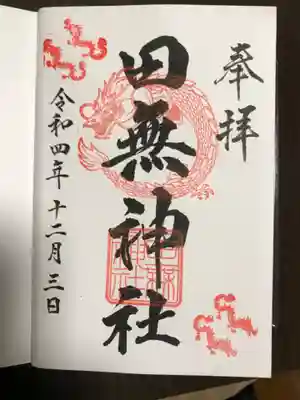 奉拝
田無神社
令和四年十二月三日